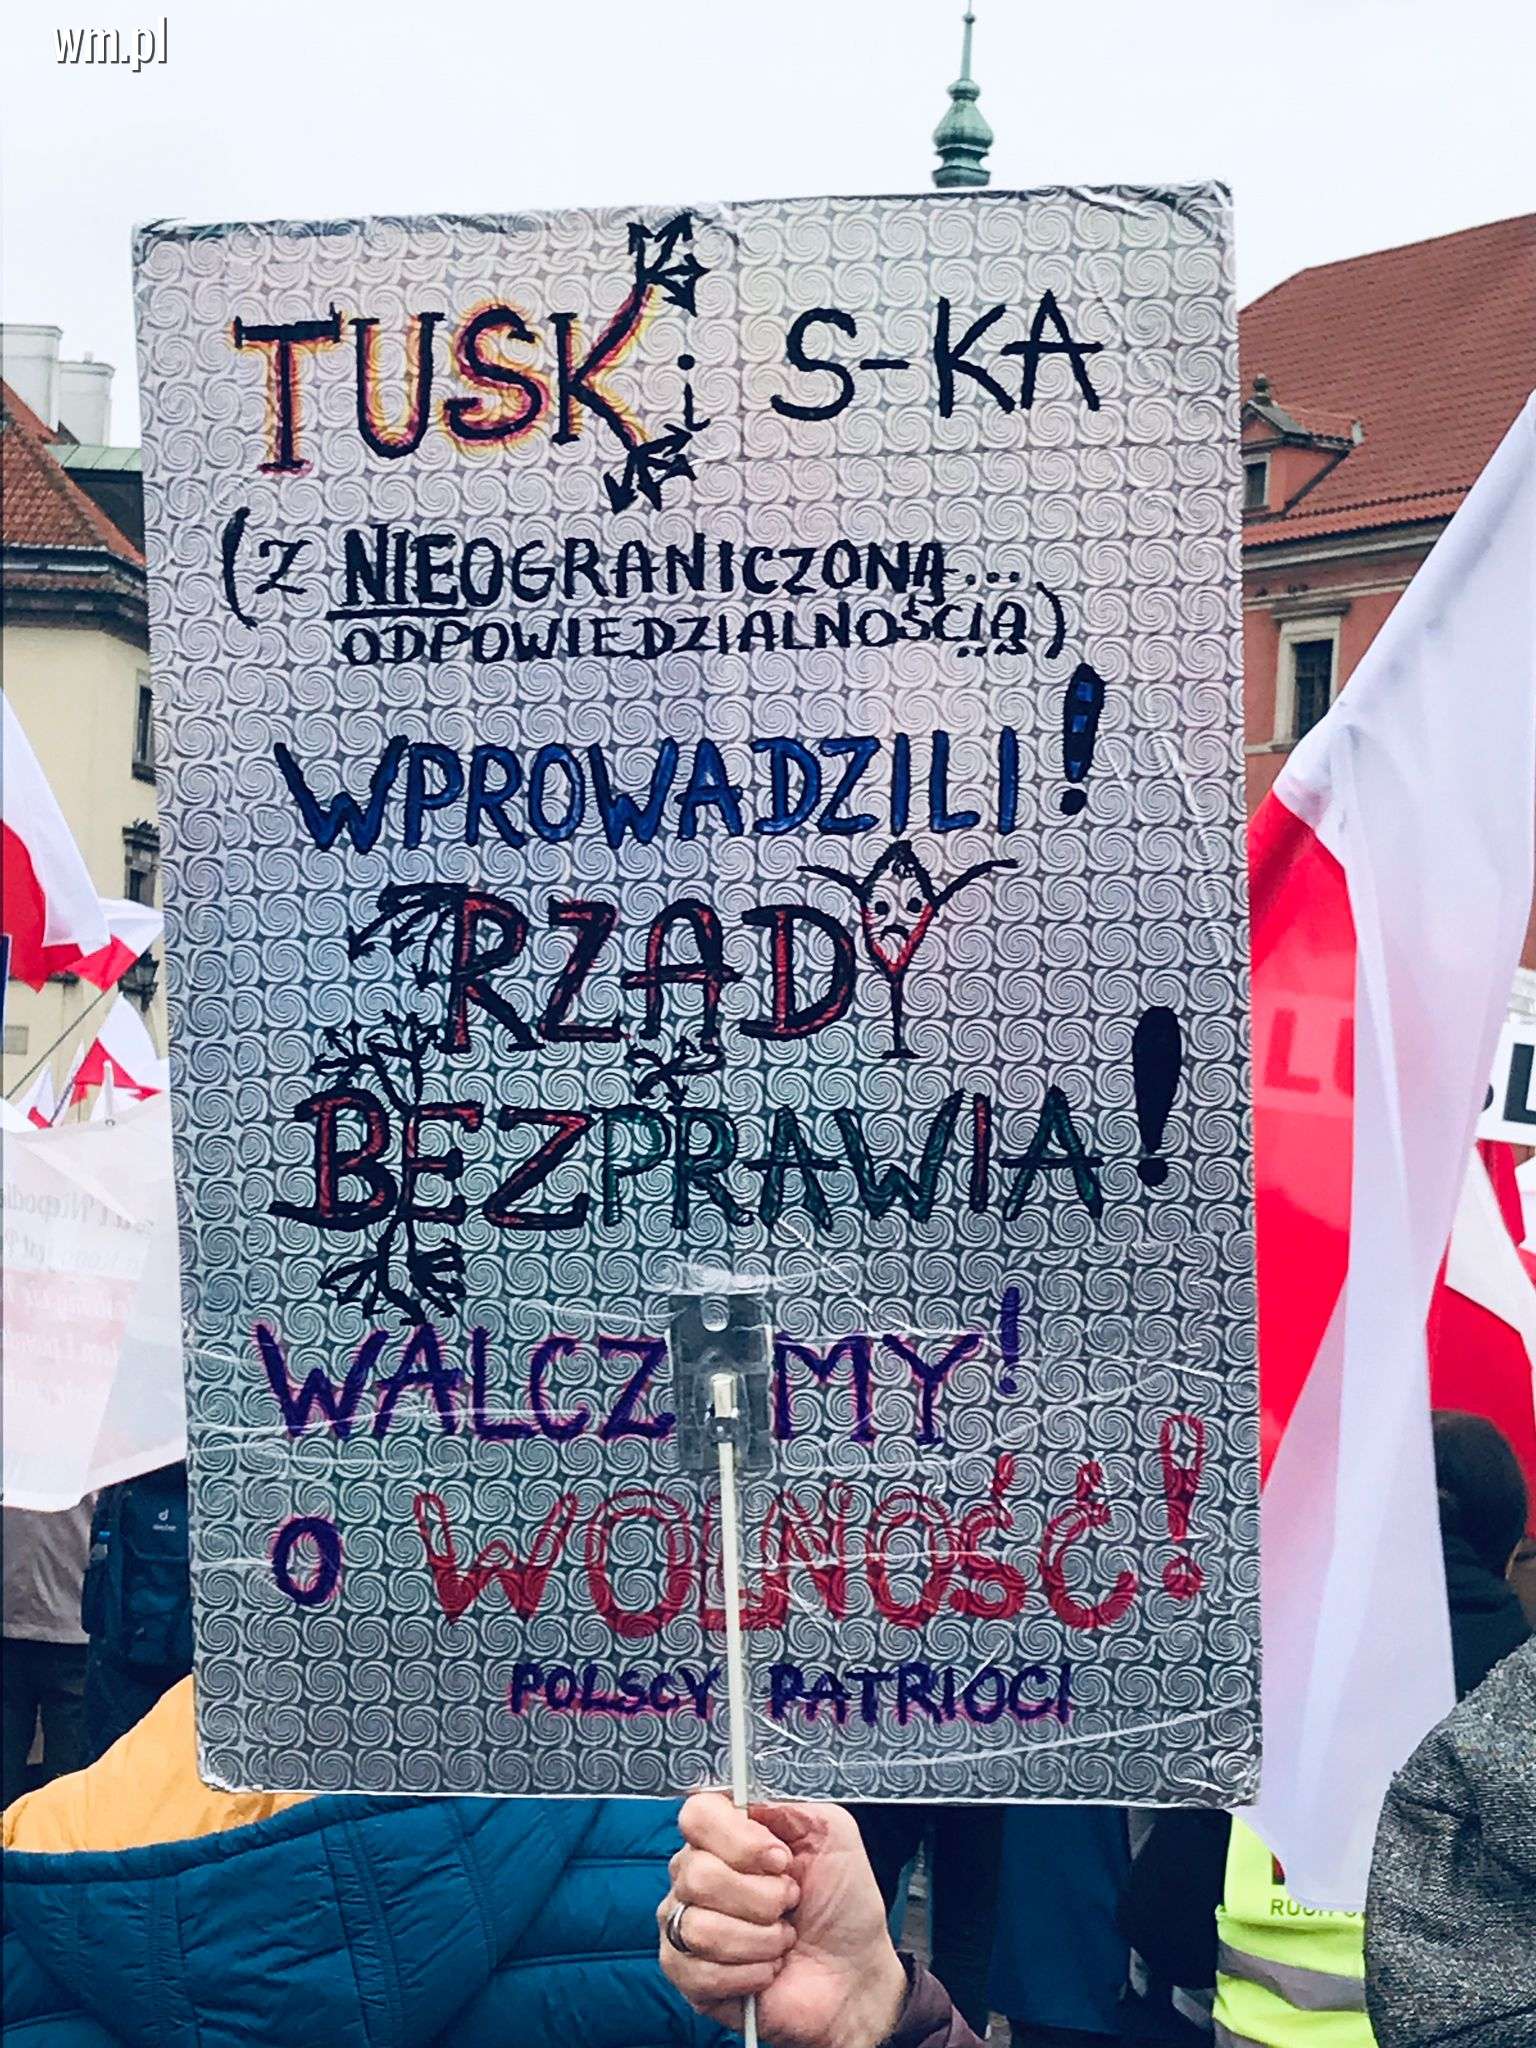 wm.pl
TUSK i S-KA
(Z NIEOGRANICZONĄ...
ODPOWIEDZIALNOŚCIĄ)
WPROWADZILI!
RZĄDY
BEZPRAWIA!
WALCZ MY!
O WOLNOŚĆ!
POLSCY PATRIOCI